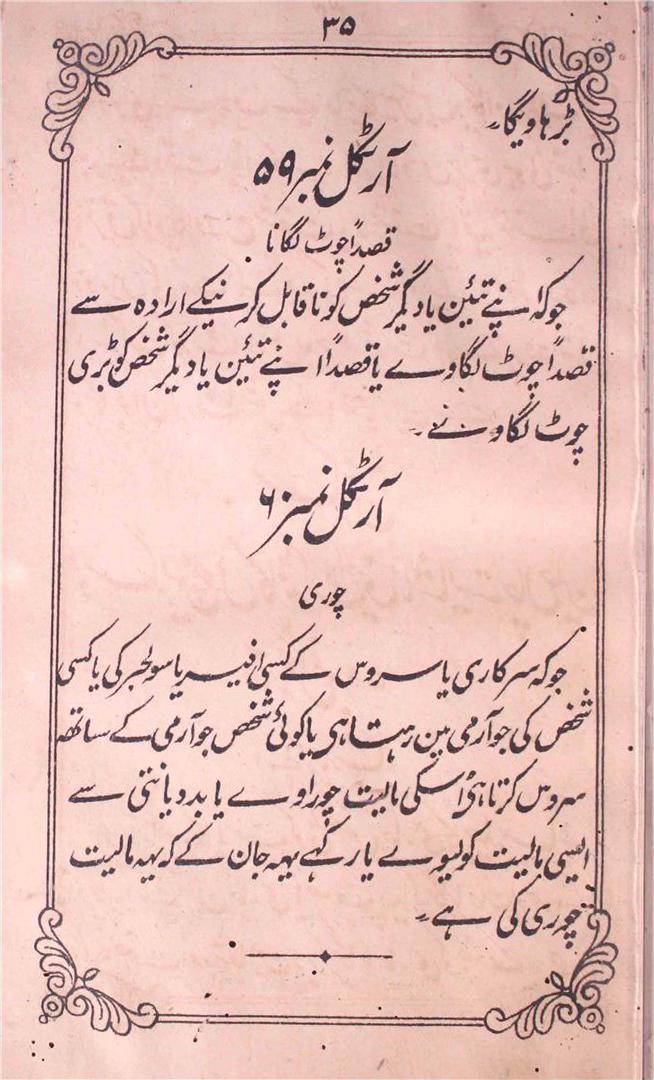 ۳۵
بڑہاویگا۔
آرٹکل نمبر ۵۹
قصداً چوٹ لگانا
جو کہ اپنے تئین یا دیگر شخص کو ناقابل کرنیکے ارادہ سے
قصداً چوٹ لگاوے یا قصداً اپنے تئین یا دیگر شخص کو بڑی
چوٹ لگاونے۔
آرٹکل نمبر ۶۰
چوری
جو کہ سرکاری یا سروس کے کسی افیسر یا سولجر کی یا کسی
شخص کی جو آرمی مین رہتا ہی یا کوئی شخص جو آرمی کے ساتھہ
سروس کرتا ہی اُسکی مالیت چوراوے یا بددیانتی سے
ایسی مالیت کو لیوے یا رکہے یہہ جان کے کہ یہہ مالیت
چوری کی ہے۔